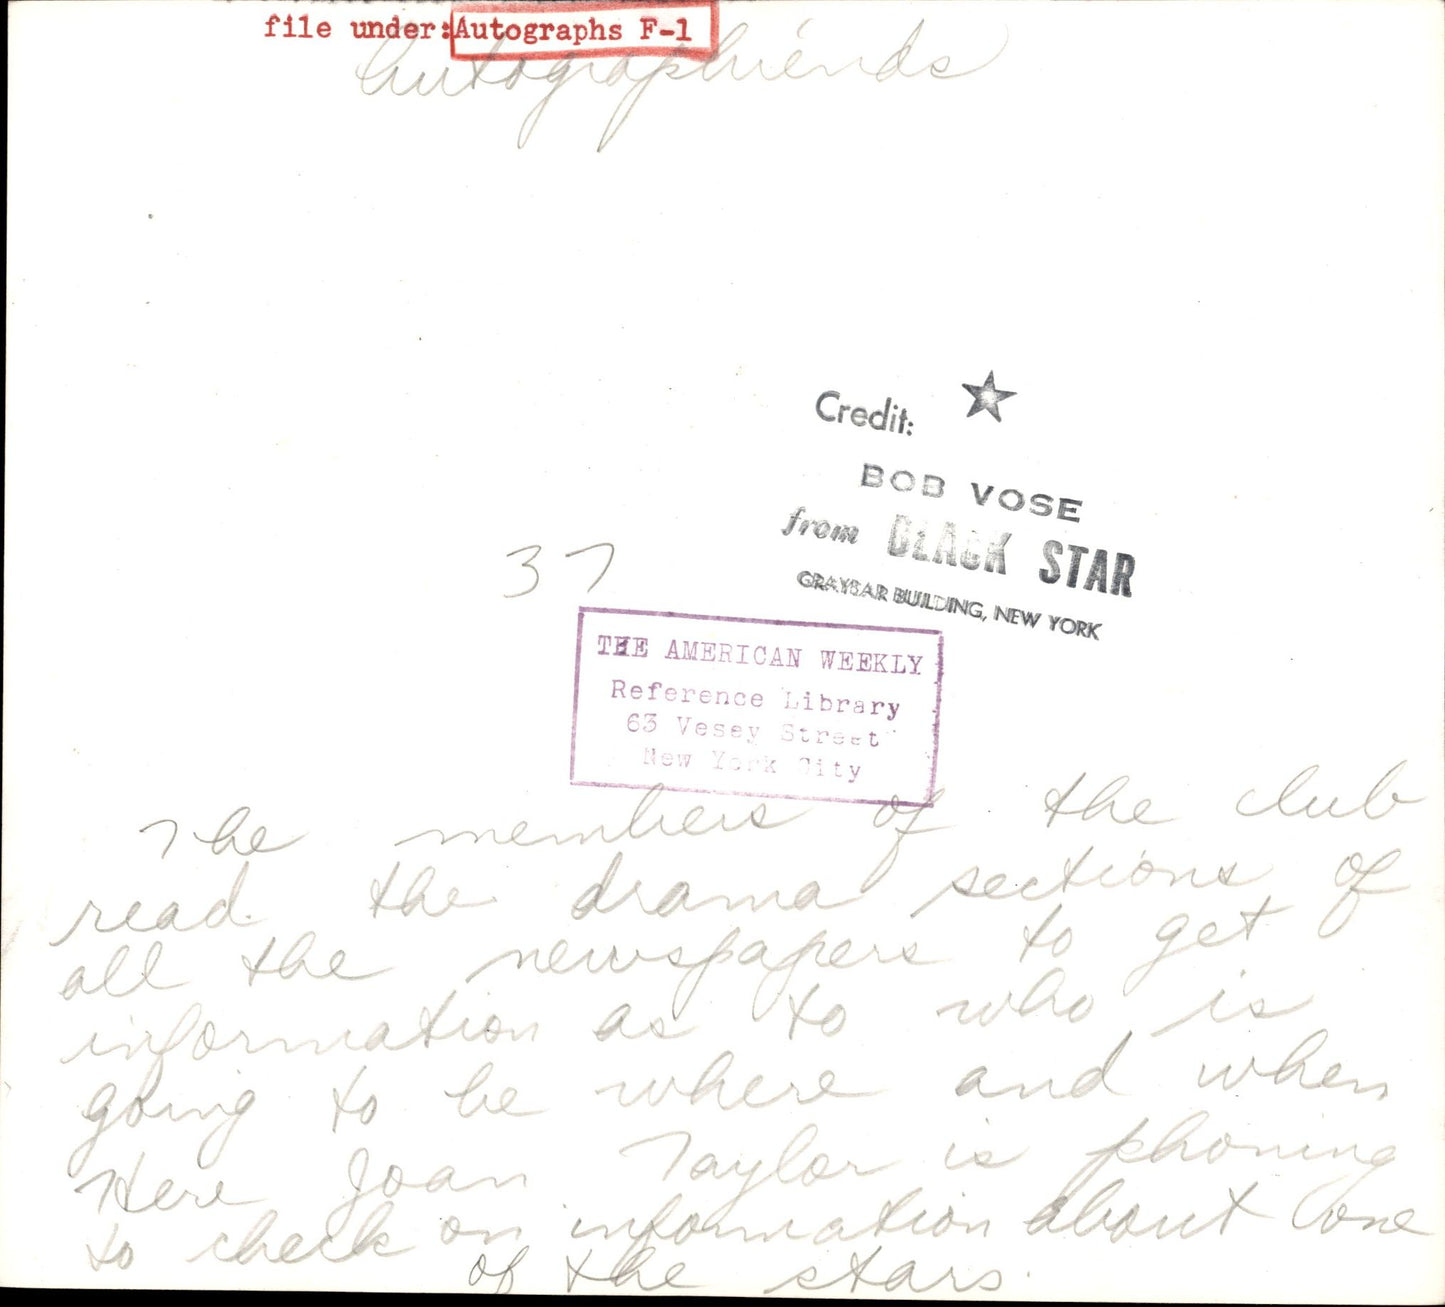 file under: Autographs F-1
Autographiends
Credit:
BOB VOSE
from BLACK STAR
GRAYBAR BUILDING, NEW YORK
37
THE AMERICAN WEEKLY
Reference Library
63 Vesey Street
New York City
The members of the club
read the drama sections of
all the newspapers to get
information as to who is
going to be where and when
Here Joan Taylor is phoning
to check on information about one
of the stars.